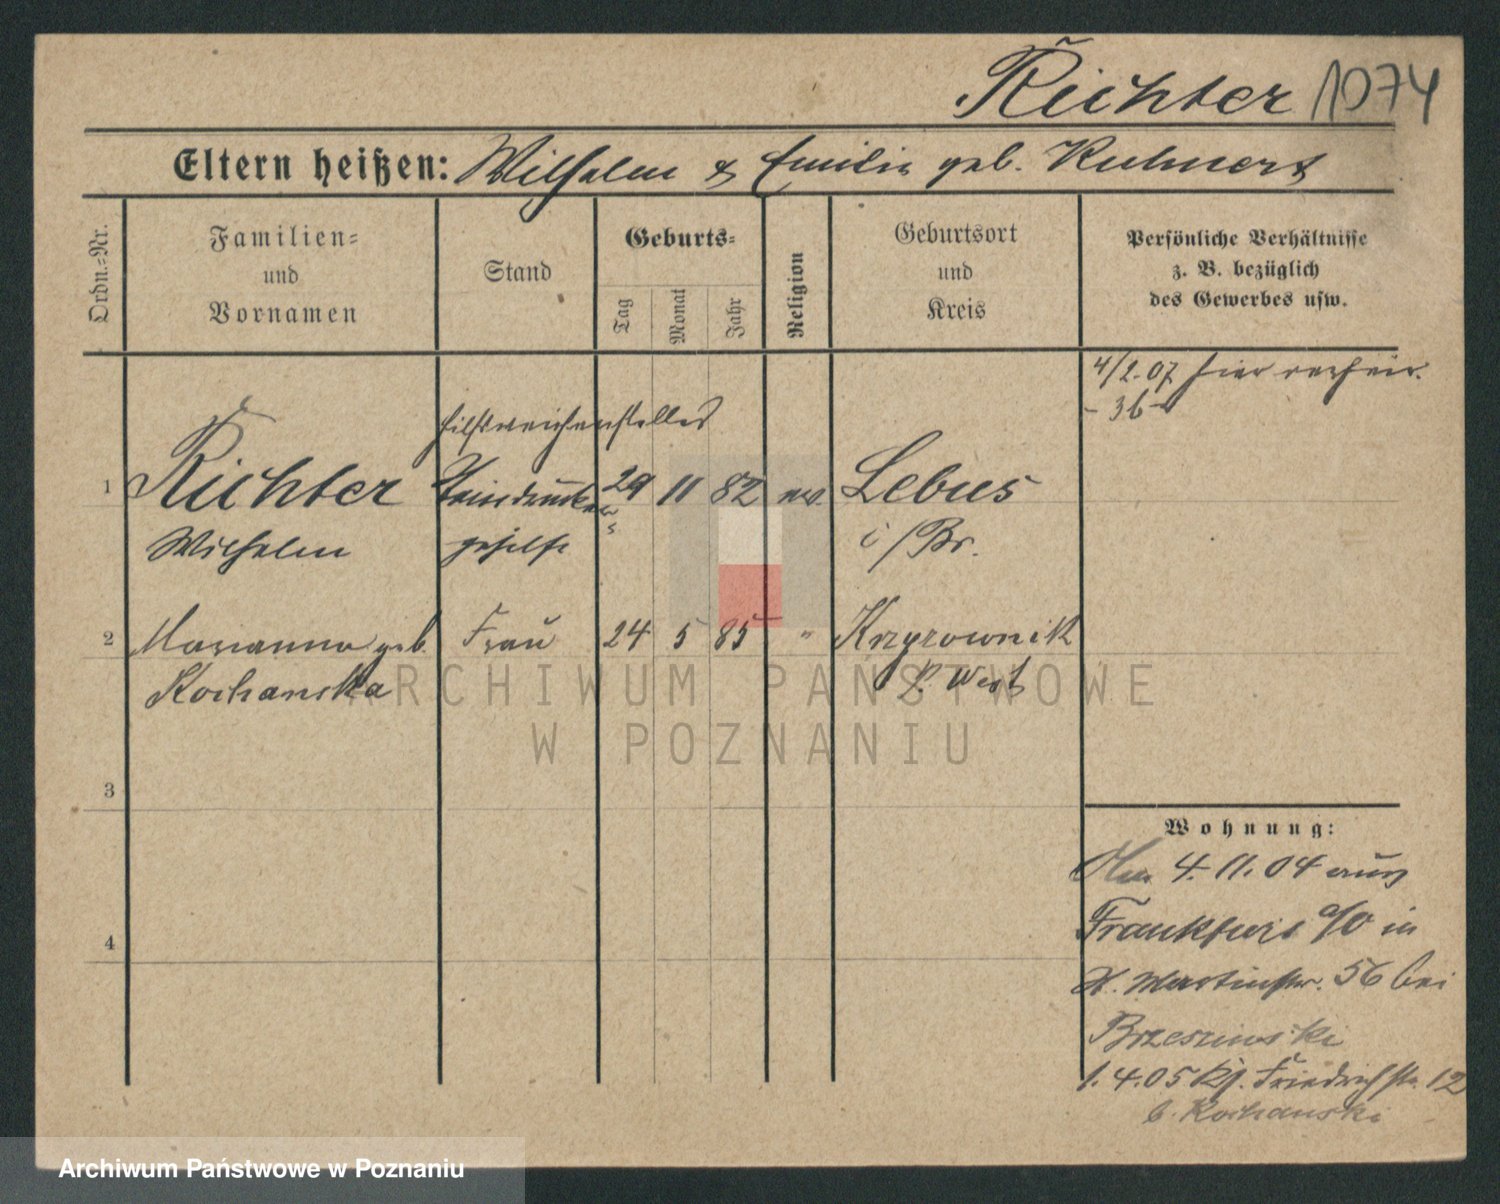 Richter 1074
Eltern heißen: Wilhelm & Emilie geb. Kuhnert
Ordn.-Nr.
Familien-
und
Vornamen
Stand
Geburts-
Tag
Monat
Jahr
Religion
Geburtsort
und
Kreis
Persönliche Verhältnisse
z. B. bezüglich
des Gewerbes usw.
4/2.07 hier verheir.
- 36 -
Hilfsweichensteller
1 Richter Steindrucker- 29 11 82 ev. Lebus
Wilhelm gehilfe i/Br.
2 Marianna geb Frau 24 5 85 " Krzyzownik
Kochanska P. West
3
4
Wohnung:
4.11.04 aus
Frankfurt a/O in
St. Martinstr. 56 bei
Brzesinski
1.4.05 Friedrichstr. 12
b. Kochanski
ARCHIWUM PAŃSTWOWE
W POZNANIU
Archiwum Państwowe w Poznaniu